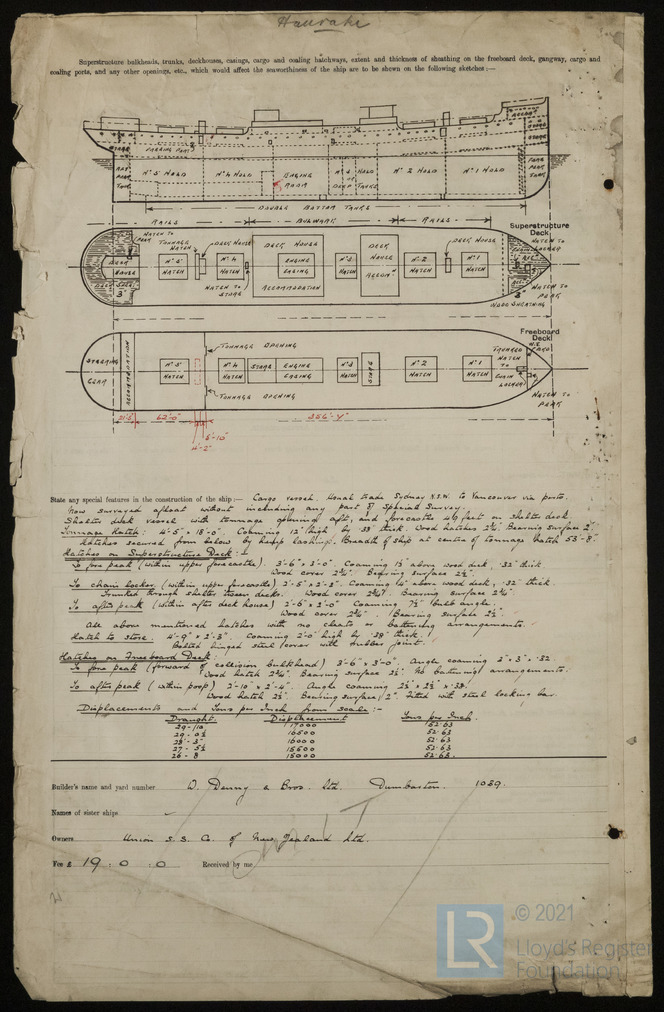 Hauraki
Superstructure bulkheads, trunks, deckhouses, casings, cargo and coaling hatchways, extent and thickness of sheathing on the freeboard deck, gangway, cargo and
coaling ports, and any other openings, etc., which would affect the seaworthiness of the ship are to be shown on the following sketches:—
STORE
AFT PEAK TANK
Nº 5 HOLD
Nº 4 HOLD
ENGINE ROOM
Nº 3 HOLD OR DEEP TANKS
Nº 2 HOLD
Nº 1 HOLD
FORE PEAK TANK
DOUBLE BOTTOM TANKS
RAILS
BULWARK
RAILS
Superstructure Deck
HATCH TO PEAK
TONNAGE HATCH
DECK HOUSE
DECK HOUSE
Nº 5 HATCH
Nº 4 HATCH
HATCH TO STORE
DECK HOUSE
ENGINE CASING
ACCOMMODATION
Nº 3 HATCH
DECK HOUSE
ACCOMⁿ
Nº 2 HATCH
DECK HOUSE
Nº 1 HATCH
HATCH TO
HATCH TO PEAK
WOOD SHEATHING
3"
3"
Freeboard Deck
STEERING GEAR
ACCOMMODATION
Nº 5 HATCH
TONNAGE OPENING
Nº 4 HATCH
STORE
ENGINE CASING
Nº 3 HATCH
STORE
Nº 2 HATCH
Nº 1 HATCH
TRUNKED HATCH TO CHAIN LOCKER
HATCH TO PEAK
TONNAGE OPENING
62'-0"
5'-10"
4'-2"
356'-4"
State any special features in the construction of the ship:— Cargo vessel. Usual trade Sydney N.S.W. to Vancouver via ports.
Now surveyed afloat without including any part of Special Survey.
Shelter deck vessel with tonnage openings aft, and forecastle 49 feet on shelter deck
Tonnage Hatch: 4'-5" x 18'-0" Coaming 12" high by .33" thick. Wood hatches 2¾". Bearing surface 2"
Hatches secured from below by hemp lashing. Breadth of ship at centre of tonnage hatch 53'-8".
Hatches on Superstructure Deck:—
To fore peak (within upper forecastle). 3'-6" x 3'-0". Coaming above wood deck, .32" thick
Wood cover 2¾". Bearing surface 2½".
To chain locker (within upper forecastle) 2'-5" x 2'-2". Coaming above wood deck, .32" thick.
Trunked through shelter tween decks. Wood cover Bearing surface 2¾".
To after peak (within after deck house) 2'-6" x 2'-0" Coaming 7½" bulb angle.
Wood cover 2¾". Bearing surface 2½".
All above mentioned hatches with no cleats or battening arrangements.
Hatch to store. 4'-9" x 2'-3". Coaming 2'-0" high by .38" thick.
Bolted hinged steel cover with rubber joint.
Hatches on Freeboard Deck:
To fore peak (forward of collision bulkhead) 3'-6" x 3'-0". Angle coaming 2" x 3" x .32
Wood hatch 2¾". Bearing surface 2½". No battening arrangements.
To after peak (within poop) 2'-10" x 2'-4". Angle coaming 2½" x 2½" x .38.
Wood hatch 2½". Bearing surface 2". Fitted with steel locking bar.
Displacements and Tons per Inch from scale:—
Draught. Displacement Tons per Inch.
29-10 17000 52.63
29-0½ 16500 52.63
28-3 16000 52.63
27-5½ 15500 52.63
26-8 15000 52.63
Builder's name and yard number W. Denny & Bros. Ltd. Dumbarton. 1039.
Names of sister ships —
Owners Union S.S. Co. of New Zealand Ltd.
Fee £ 19 : 0 : 0 Received by me
LR © 2021
Lloyd's Register
Foundation